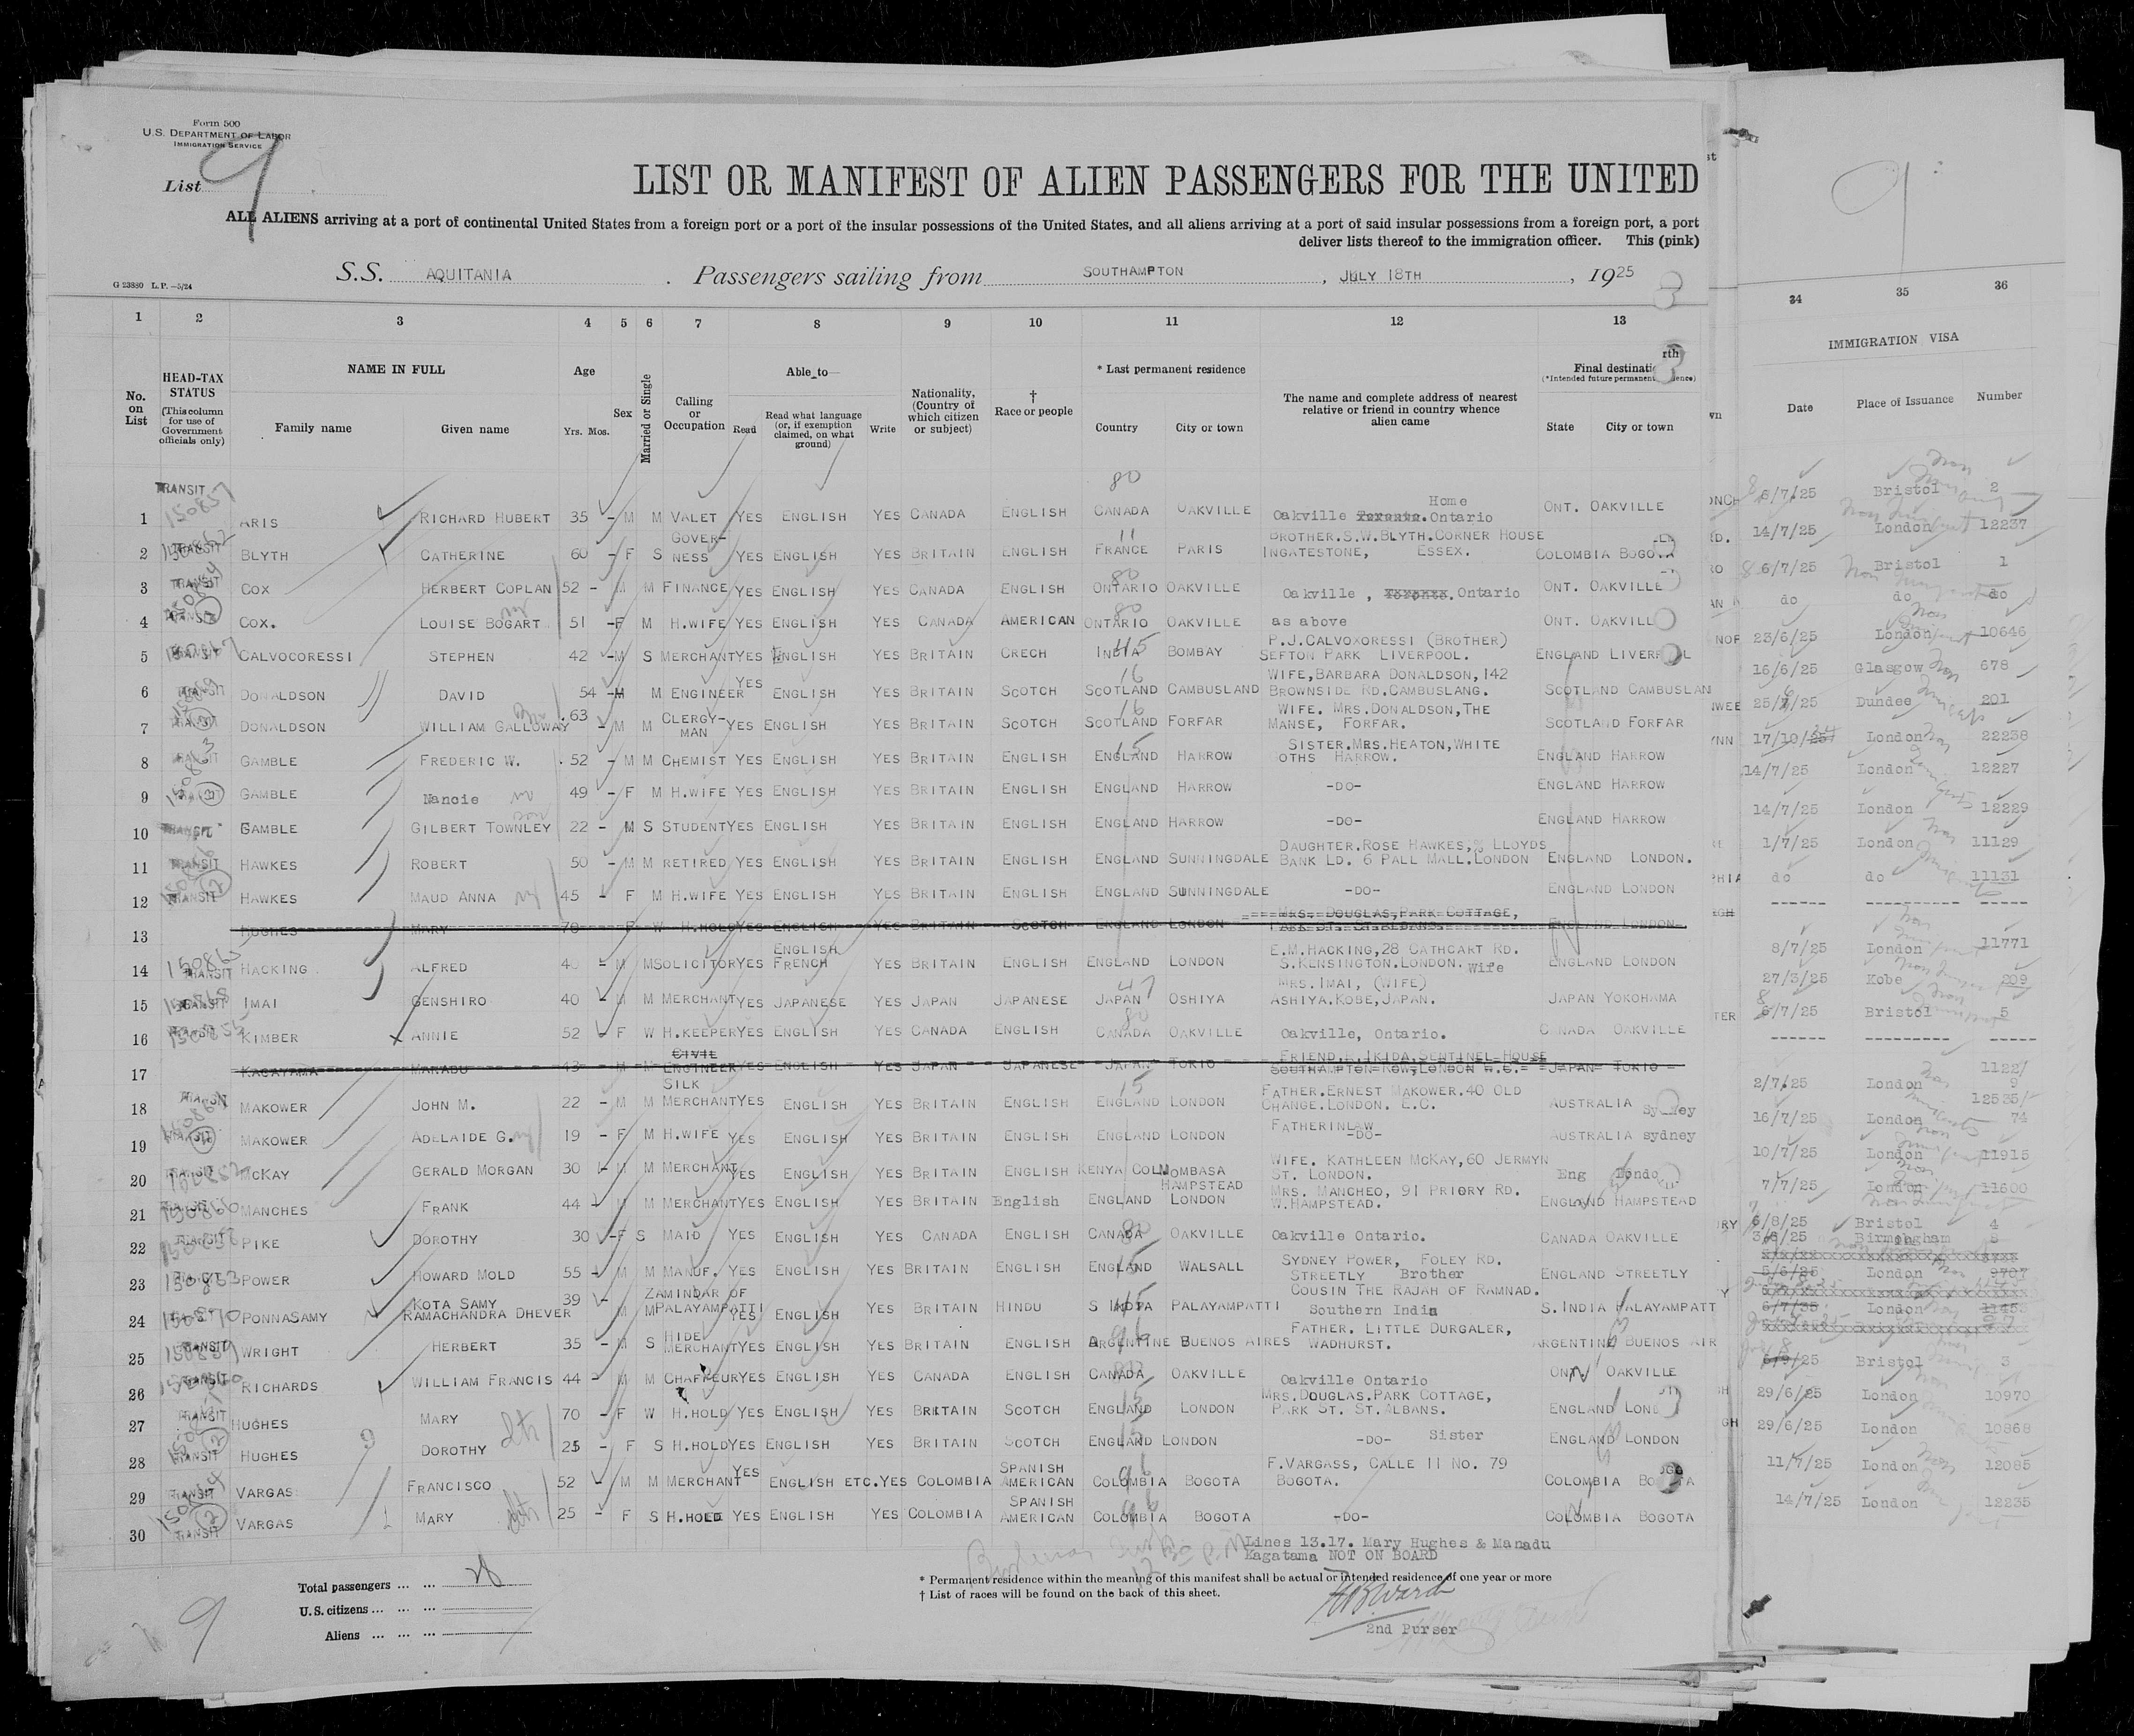 Form 500
U.S. DEPARTMENT OF LABOR
IMMIGRATION SERVICE
List 9
LIST OR MANIFEST OF ALIEN PASSENGERS FOR THE UNITED
ALL ALIENS arriving at a port of continental United States from a foreign port or a port of the insular possessions of the United States, and all aliens arriving at a port of said insular possessions from a foreign port, a port
deliver lists thereof to the immigration officer. This (pink)
S.S. AQUITANIA. Passengers sailing from SOUTHAMPTON, JULY 18TH, 1925
G 23880 L.P.—5/24
1 2 3 4 5 6 7 8 9 10 11 12 13 34 35 36
No. on List
HEAD-TAX STATUS (This column for use of Government officials only)
NAME IN FULL Family name Given name
Age Yrs. Mos.
Sex
Married or Single
Calling or Occupation
Able to— Read Read what language (or, if exemption claimed, on what ground) Write
Nationality, (Country of which citizen or subject)
† Race or people
* Last permanent residence Country City or town
The name and complete address of nearest relative or friend in country whence alien came
Final destination (*Intended future permanent residence) State City or town
IMMIGRATION VISA Date Place of Issuance Number
1 TRANSIT 150857 ARIS RICHARD HUBERT 35 - M M VALET YES ENGLISH YES CANADA ENGLISH CANADA OAKVILLE Home Oakville Toronto. Ontario ONT. OAKVILLE 6/7/25 Bristol 2
2 TRANSIT BLYTH CATHERINE 60 - F S GOVER-NESS YES ENGLISH YES BRITAIN ENGLISH FRANCE PARIS BROTHER.S.W.BLYTH.CORNER HOUSE INGATESTONE, ESSEX. COLOMBIA BOGOTA 14/7/25 London 12237
3 TRANSIT COX HERBERT COPLAN 52 - M M FINANCE YES ENGLISH YES CANADA ENGLISH ONTARIO OAKVILLE Oakville , Toronto. Ontario ONT. OAKVILLE 6/7/25 Bristol 1
4 TRANSIT COX. LOUISE BOGART 51 - F M H.WIFE YES ENGLISH YES CANADA AMERICAN ONTARIO OAKVILLE as above ONT. OAKVILL do do do
5 TRANSIT CALVOCORESSI STEPHEN 42 - M S MERCHANT YES ENGLISH YES BRITAIN CRECH INDIA BOMBAY P.J.CALVOXORESSI (BROTHER) SEFTON PARK LIVERPOOL. ENGLAND LIVERPOOL 23/6/25 London 10646
6 TRANSIT DONALDSON DAVID 54 - M M ENGINEER YES ENGLISH YES BRITAIN SCOTCH SCOTLAND CAMBUSLAND WIFE,BARBARA DONALDSON,142 BROWNSIDE RD.CAMBUSLANG. SCOTLAND CAMBUSLAN 16/6/25 Glasgow 678
7 TRANSIT DONALDSON WILLIAM GALLOWAY 63 - M M CLERGY-MAN YES ENGLISH YES BRITAIN SCOTCH SCOTLAND FORFAR WIFE. MRS.DONALDSON,THE MANSE, FORFAR. SCOTLAND FORFAR 25/6/25 Dundee 201
8 TRANSIT GAMBLE FREDERIC W. 52 - M M CHEMIST YES ENGLISH YES BRITAIN ENGLISH ENGLAND HARROW SISTER.MRS.HEATON,WHITE OTHS HARROW. ENGLAND HARROW 17/10/ London 22238
9 TRANSIT GAMBLE Nancie 49 - F M H.WIFE YES ENGLISH YES BRITAIN ENGLISH ENGLAND HARROW -DO- ENGLAND HARROW 14/7/25 London 12227
10 TRANSIT GAMBLE GILBERT TOWNLEY 22 - M S STUDENT YES ENGLISH YES BRITAIN ENGLISH ENGLAND HARROW -DO- ENGLAND HARROW 14/7/25 London 12229
11 TRANSIT HAWKES ROBERT 50 - M M RETIRED YES ENGLISH YES BRITAIN ENGLISH ENGLAND SUNNINGDALE DAUGHTER.ROSE HAWKES,% LLOYDS BANK LD. 6 PALL MALL.LONDON ENGLAND LONDON. 1/7/25 London 11129
12 TRANSIT HAWKES MAUD ANNA 45 - F M H.WIFE YES ENGLISH YES BRITAIN ENGLISH ENGLAND SUNNINGDALE -DO- ENGLAND LONDON do do 11131
13 HUGHES MARY 70 - F W H.HOLD YES ENGLISH YES BRITAIN SCOTCH ENGLAND LONDON MRS. DOUGLAS,PARK COTTAGE, PARK ST. ST.ALBANS. ENGLAND LONDON
14 150865 TRANSIT HACKING ALFRED 40 - M M SOLICITOR YES ENGLISH FRENCH YES BRITAIN ENGLISH ENGLAND LONDON E.M.HACKING,28 CATHCART RD. S.KENSINGTON.LONDON. Wife ENGLAND LONDON 8/7/25 London 11771
15 TRANSIT IMAI GENSHIRO 40 - M M MERCHANT YES JAPANESE YES JAPAN JAPANESE JAPAN OSHIYA MRS.IMAI, (WIFE) ASHIYA.KOBE,JAPAN. JAPAN YOKOHAMA 27/3/25 Kobe 209
16 TRANSIT KIMBER ANNIE 52 - F W H.KEEPER YES ENGLISH YES CANADA ENGLISH CANADA OAKVILLE Oakville, Ontario. CANADA OAKVILLE 6/7/25 Bristol 5
17 KAGATAMA MANADU 43 - M M CIVIL ENGINEER YES ENGLISH YES JAPAN JAPANESE JAPAN TOKIO FRIEND.R.IKIDA,SENTINEL HOUSE SOUTHAMPTON ROW,LONDON W.C. JAPAN TOKIO
18 TRANSIT MAKOWER JOHN M. 22 - M M SILK MERCHANT YES ENGLISH YES BRITAIN ENGLISH ENGLAND LONDON FATHER.ERNEST MAKOWER.40 OLD CHANGE.LONDON. E.C. AUSTRALIA Sydney 2/7/25 London 11227/9
19 TRANSIT MAKOWER ADELAIDE G. 19 - F M H.WIFE YES ENGLISH YES BRITAIN ENGLISH ENGLAND LONDON FATHERINLAW -DO- AUSTRALIA sydney 16/7/25 London 12535/74
20 TRANSIT MCKAY GERALD MORGAN 30 - M M MERCHANT YES ENGLISH YES BRITAIN ENGLISH KENYA COL MOMBASA WIFE. KATHLEEN MCKAY,60 JERMYN ST. LONDON. Eng Londo 10/7/25 London 11915
21 TRANSIT MANCHES FRANK 44 - M M MERCHANT YES ENGLISH YES BRITAIN English ENGLAND HAMPSTEAD LONDON MRS. MANCHEO, 91 PRIORY RD. W.HAMPSTEAD. ENGLAND HAMPSTEAD 7/7/25 London 11600
22 TRANSIT PIKE DOROTHY 30 - F S MAID YES ENGLISH YES CANADA ENGLISH CANADA OAKVILLE Oakville Ontario. CANADA OAKVILLE 6/8/25 Bristol 4
23 TRANSIT POWER HOWARD MOLD 55 - M M MANUF. YES ENGLISH YES BRITAIN ENGLISH ENGLAND WALSALL SYDNEY POWER, FOLEY RD. STREETLY Brother ENGLAND STREETLY 3/6/25 Birmingham 8
5/6/25 London 9707
24 150870 PONNASAMY KOTA SAMY RAMACHANDRA DHEVER 39 - M M ZAMINDAR OF PALAYAMPATTI YES ENGLISH YES BRITAIN HINDU S INDIA PALAYAMPATTI COUSIN THE RAJAH OF RAMNAD. Southern India S.INDIA PALAYAMPATT London
25 TRANSIT WRIGHT HERBERT 35 - M S HIDE MERCHANT YES ENGLISH YES BRITAIN ENGLISH ARGENTINE BUENOS AIRES FATHER. LITTLE DURGALER, WADHURST. ARGENTINE BUENOS AIR
26 TRANSIT RICHARDS WILLIAM FRANCIS 44 - M M CHAFFEUR YES ENGLISH YES CANADA ENGLISH CANADA OAKVILLE Oakville Ontario ONT OAKVILLE Bristol 3
27 TRANSIT HUGHES MARY 70 - F W H.HOLD YES ENGLISH YES BRITAIN SCOTCH ENGLAND LONDON MRS.DOUGLAS.PARK COTTAGE, PARK ST. ST.ALBANS. ENGLAND LOND 29/6/25 London 10970
28 TRANSIT HUGHES DOROTHY 25 - F S H.HOLD YES ENGLISH YES BRITAIN SCOTCH ENGLAND LONDON -DO- Sister ENGLAND LONDON 29/6/25 London 10868
29 TRANSIT VARGAS FRANCISCO 52 - M M MERCHANT YES ENGLISH ETC. YES COLOMBIA SPANISH AMERICAN COLOMBIA BOGOTA F.VARGASS, CALLE 11 NO. 79 BOGOTA. COLOMBIA BOGOTA 11/7/25 London 12085
30 TRANSIT VARGAS MARY 25 - F S H.HOLD YES ENGLISH YES COLOMBIA SPANISH AMERICAN COLOMBIA BOGOTA -DO- COLOMBIA BOGOTA 14/7/25 London 12235
Lines 13.17. Mary Hughes & Manadu
Kagatama NOT ON BOARD
Total passengers ... ...
U.S. citizens ... ... ...
Aliens ... ... ...
* Permanent residence within the meaning of this manifest shall be actual or intended residence of one year or more
† List of races will be found on the back of this sheet.
2nd Purser
9